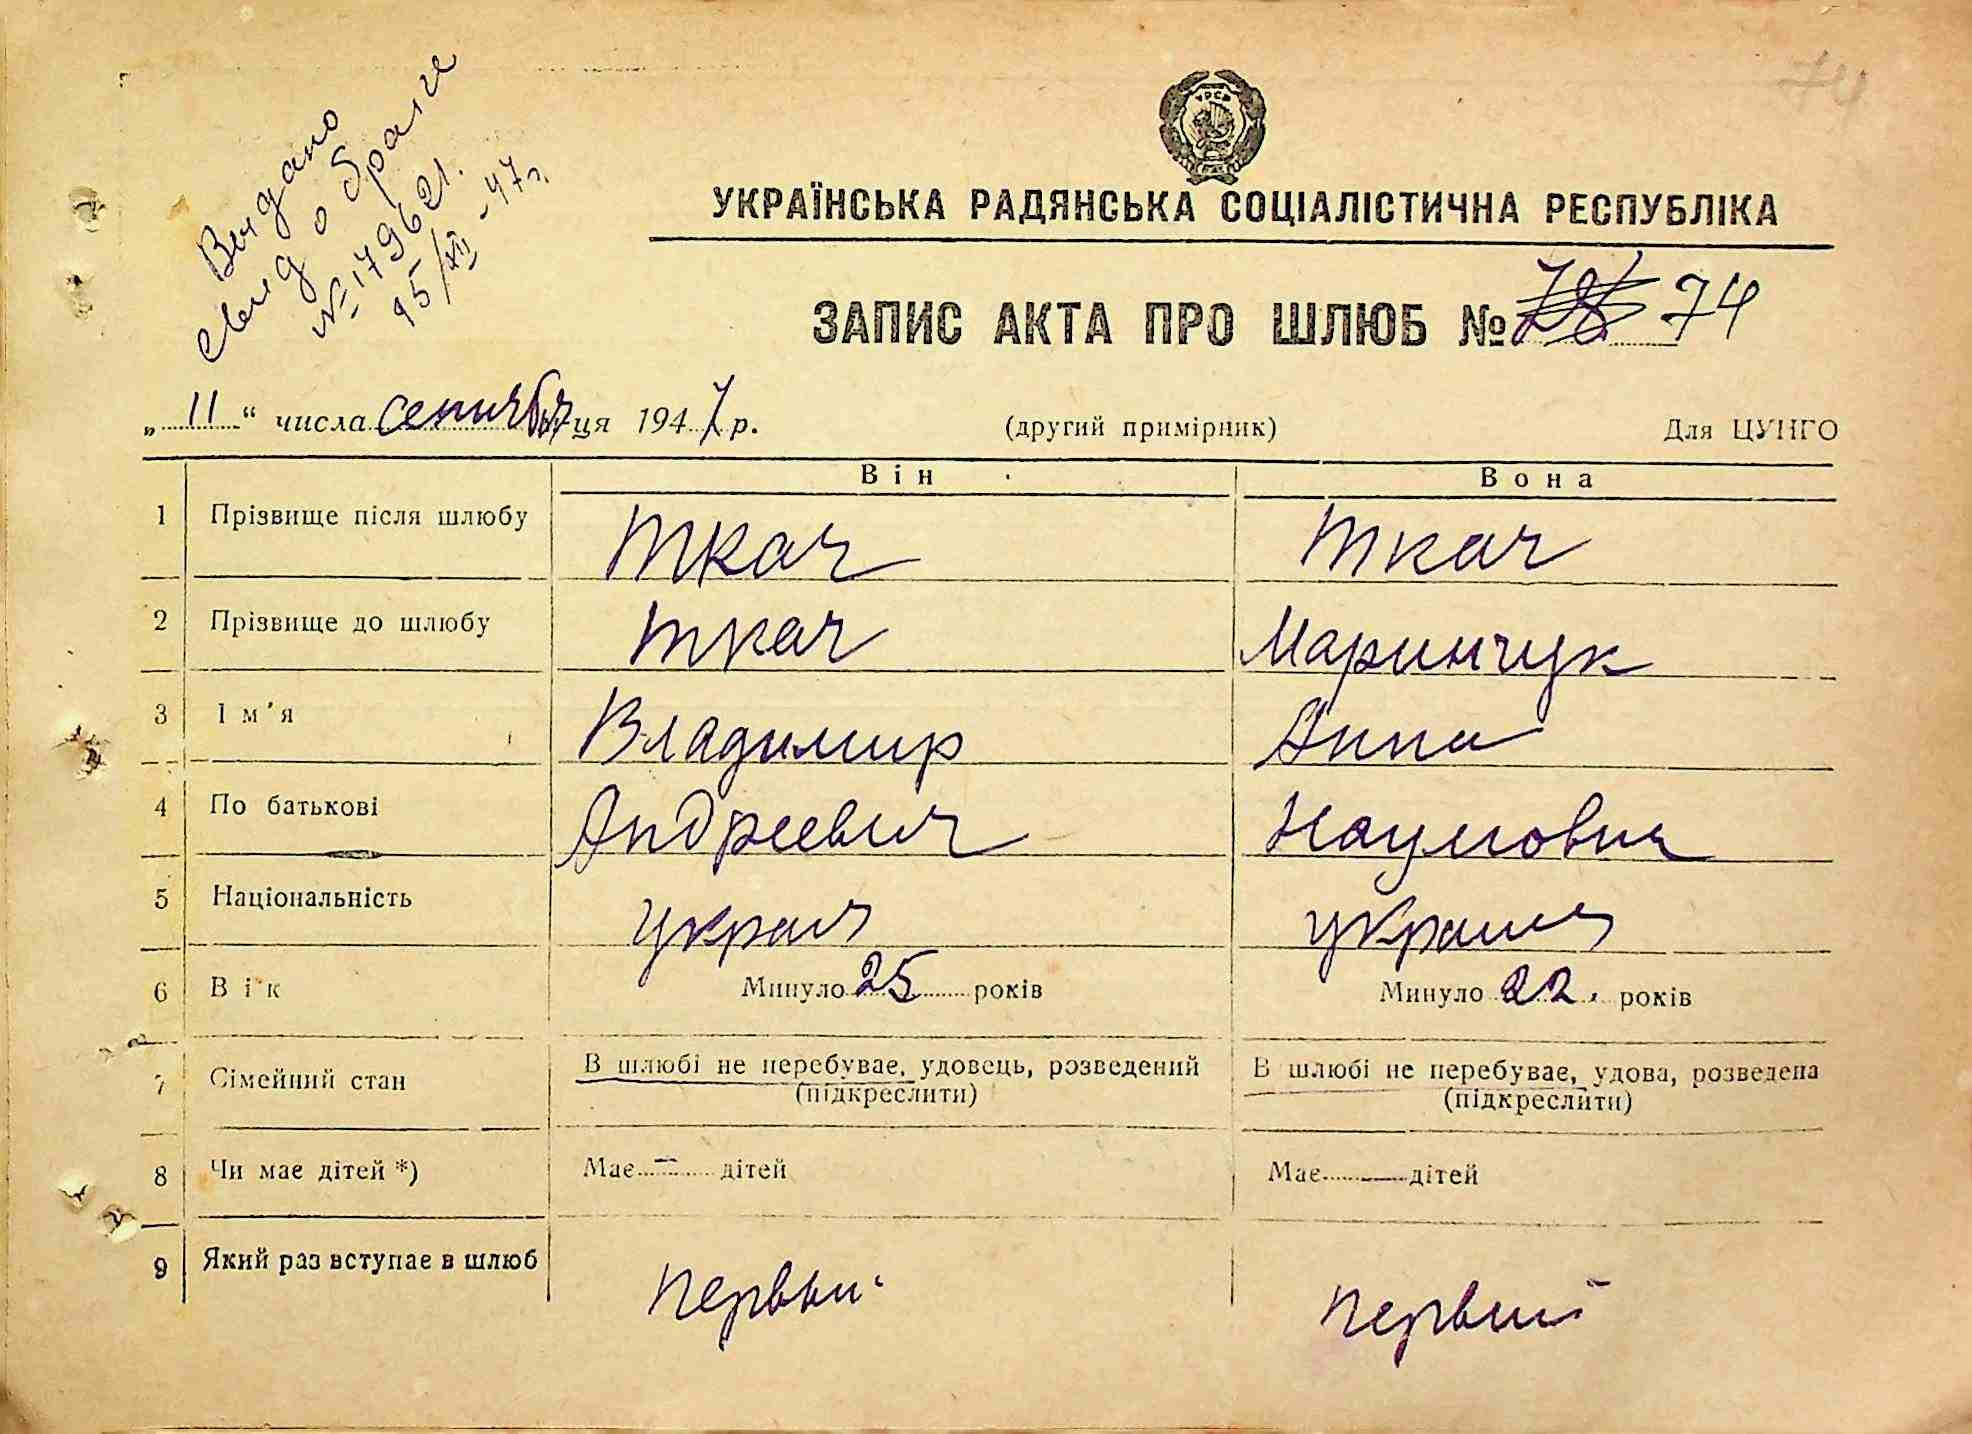 74
Видано
свид о браке
№ 179621.
15/XII-47г.
УРСР
УКРАЇНСЬКА РАДЯНСЬКА СОЦІАЛІСТИЧНА РЕСПУБЛІКА
ЗАПИС АКТА ПРО ШЛЮБ № 78 74
„ 11 “ числа сентября місяця 1947 р. (другий примірник) Для ЦУНГО
Він Вона
1 Прізвище після шлюбу Ткач Ткач
2 Прізвище до шлюбу Ткач Маринчук
3 Ім'я Владимир Анна
4 По батькові Андреевич Наумовна
5 Національність украин украин
6 Вік Минуло 25 років Минуло 22. років
7 Сімейний стан В шлюбі не перебуває, удовець, розведений В шлюбі не перебуває, удова, розведена
(підкреслити) (підкреслити)
8 Чи має дітей *) Має — дітей Має — дітей
9 Який раз вступає в шлюб первый первый